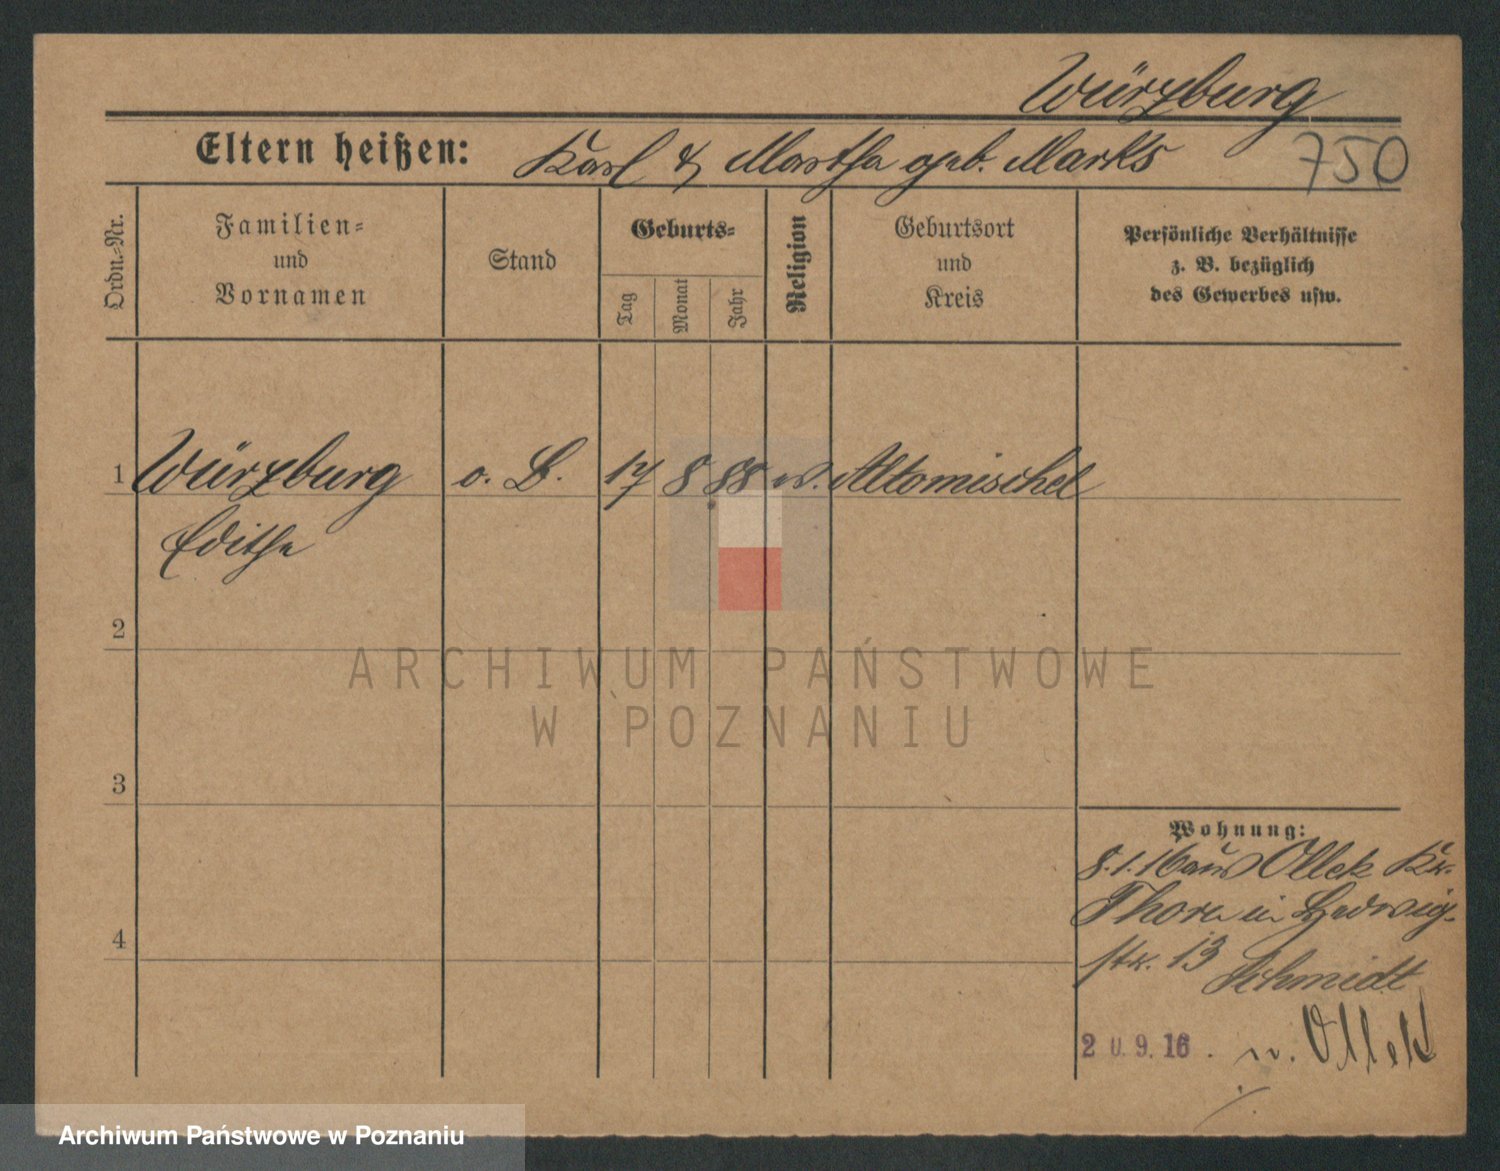 Würzburg
Eltern heißen: Karl & Martha geb. Marks
750
Ordn.-Nr.
Familien-
und
Vornamen
Stand
Geburts-
Tag
Monat
Jahr
Religion
Geburtsort
und
Kreis
Persönliche Verhältnisse
z. B. bezüglich
des Gewerbes usw.
1 Würzburg o. B. 17 8 88 Altomischel
Edithe
2
3
4
Wohnung:
8.1.16 aus Ollek Kr.
Thorn in Hedwig-
str. 13 Schmidt
20.9.16. n. Ollek
ARCHIWUM PAŃSTWOWE
W POZNANIU
Archiwum Państwowe w Poznaniu